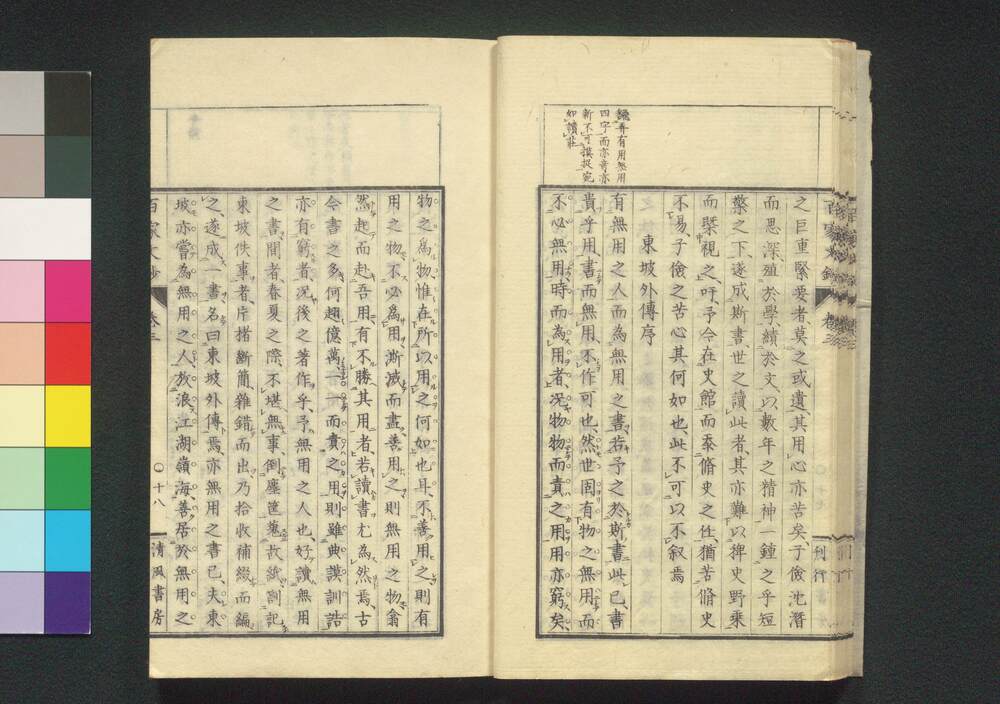 之巨重緊要者莫之或遺其用心亦苦矣子儉沈潛
而思深殖於學績於文以數年之精神一鍾之乎短
檠之下遂成斯書世之讀此者其亦難以稗史野乘
而槩視之吁予今在史館而忝脩史之任猶苦脩史
不易子儉之苦心其何如也此不可以不叙焉
東坡外傳序
有無用之人而為無用之書若予之於斯書此已書
貴乎用書而無用不作可也然世固有物之無用而
不必無用時而為用者況物物而責之用用亦窮矣
飜弄有用無用
四字而亦奇亦
新不可摸捉宛
如讀莊
刊行
物之為物惟在所以用之何如也耳不善用之則有
用之物不必為用澌滅而盡善用之則無用之物翕
然起而赴吾用有不勝其用者若讀書尤為然焉古
今書之多何趐億萬一一而責之用則雖典謨訓誥
亦有窮者況後之著作乎予無用之人也好讀無用
之書間者春夏之際不堪無事倒塵筐蒐故紙劄記
東坡佚事者片楮斷簡雜錯而出乃拾收補綴而編
之遂成一書名曰東坡外傳焉亦無用之書已夫東
坡亦嘗為無用之人放浪江湖嶺海善居於無用之
百家文鈔 卷三 〇十八 清風書房